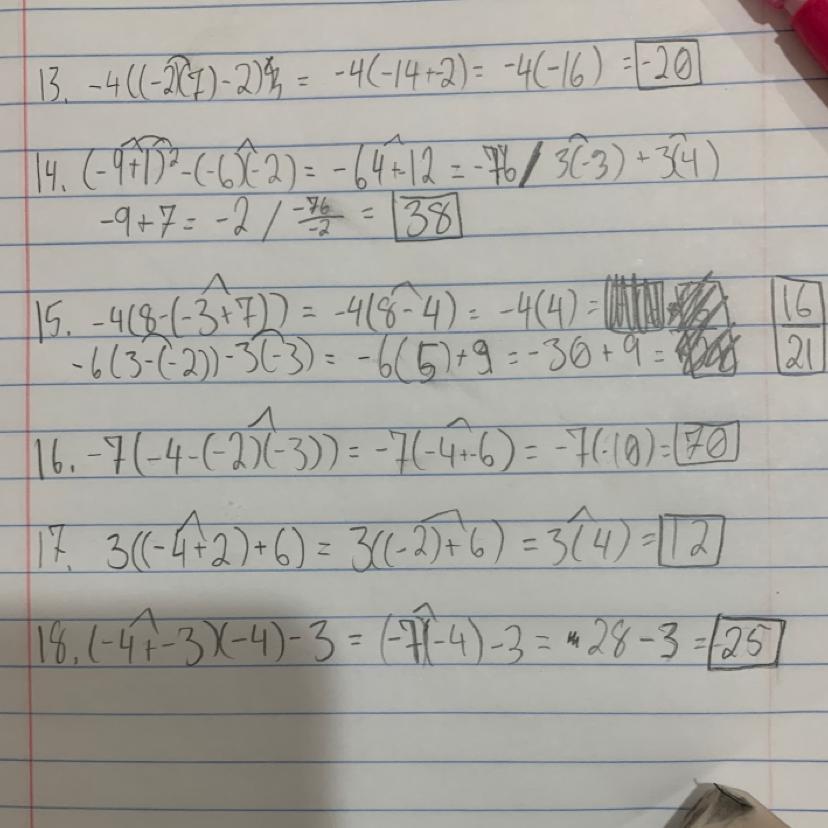 13. -4((-2)(7)-2) = -4(-14+-2) = -4(-16) = -20
14. (-9+1)²-(-6)(-2) = -64+-12 = -76 / 3(-3)+3(4)
-9+7 = -2 / -76/-2 = 38
15. -4(8-(-3+7)) = -4(8-4) = -4(4) = 16
-6(3-(-2))-3(-3) = -6(5)+9 = -30+9 = 21
16. -7(-4-(-2)(-3)) = -7(-4+-6) = -7(-10) = 70
17. 3((-4+2)+6) = 3((-2)+6) = 3(4) = 12
18. (-4+-3)(-4)-3 = (-7)(-4)-3 = 28-3 = 25